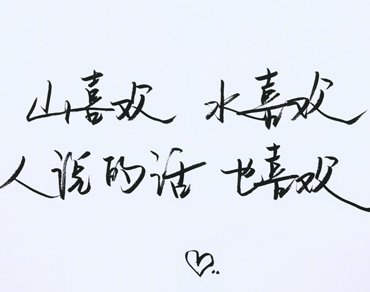 山喜欢 水喜欢
人说的话 也喜欢